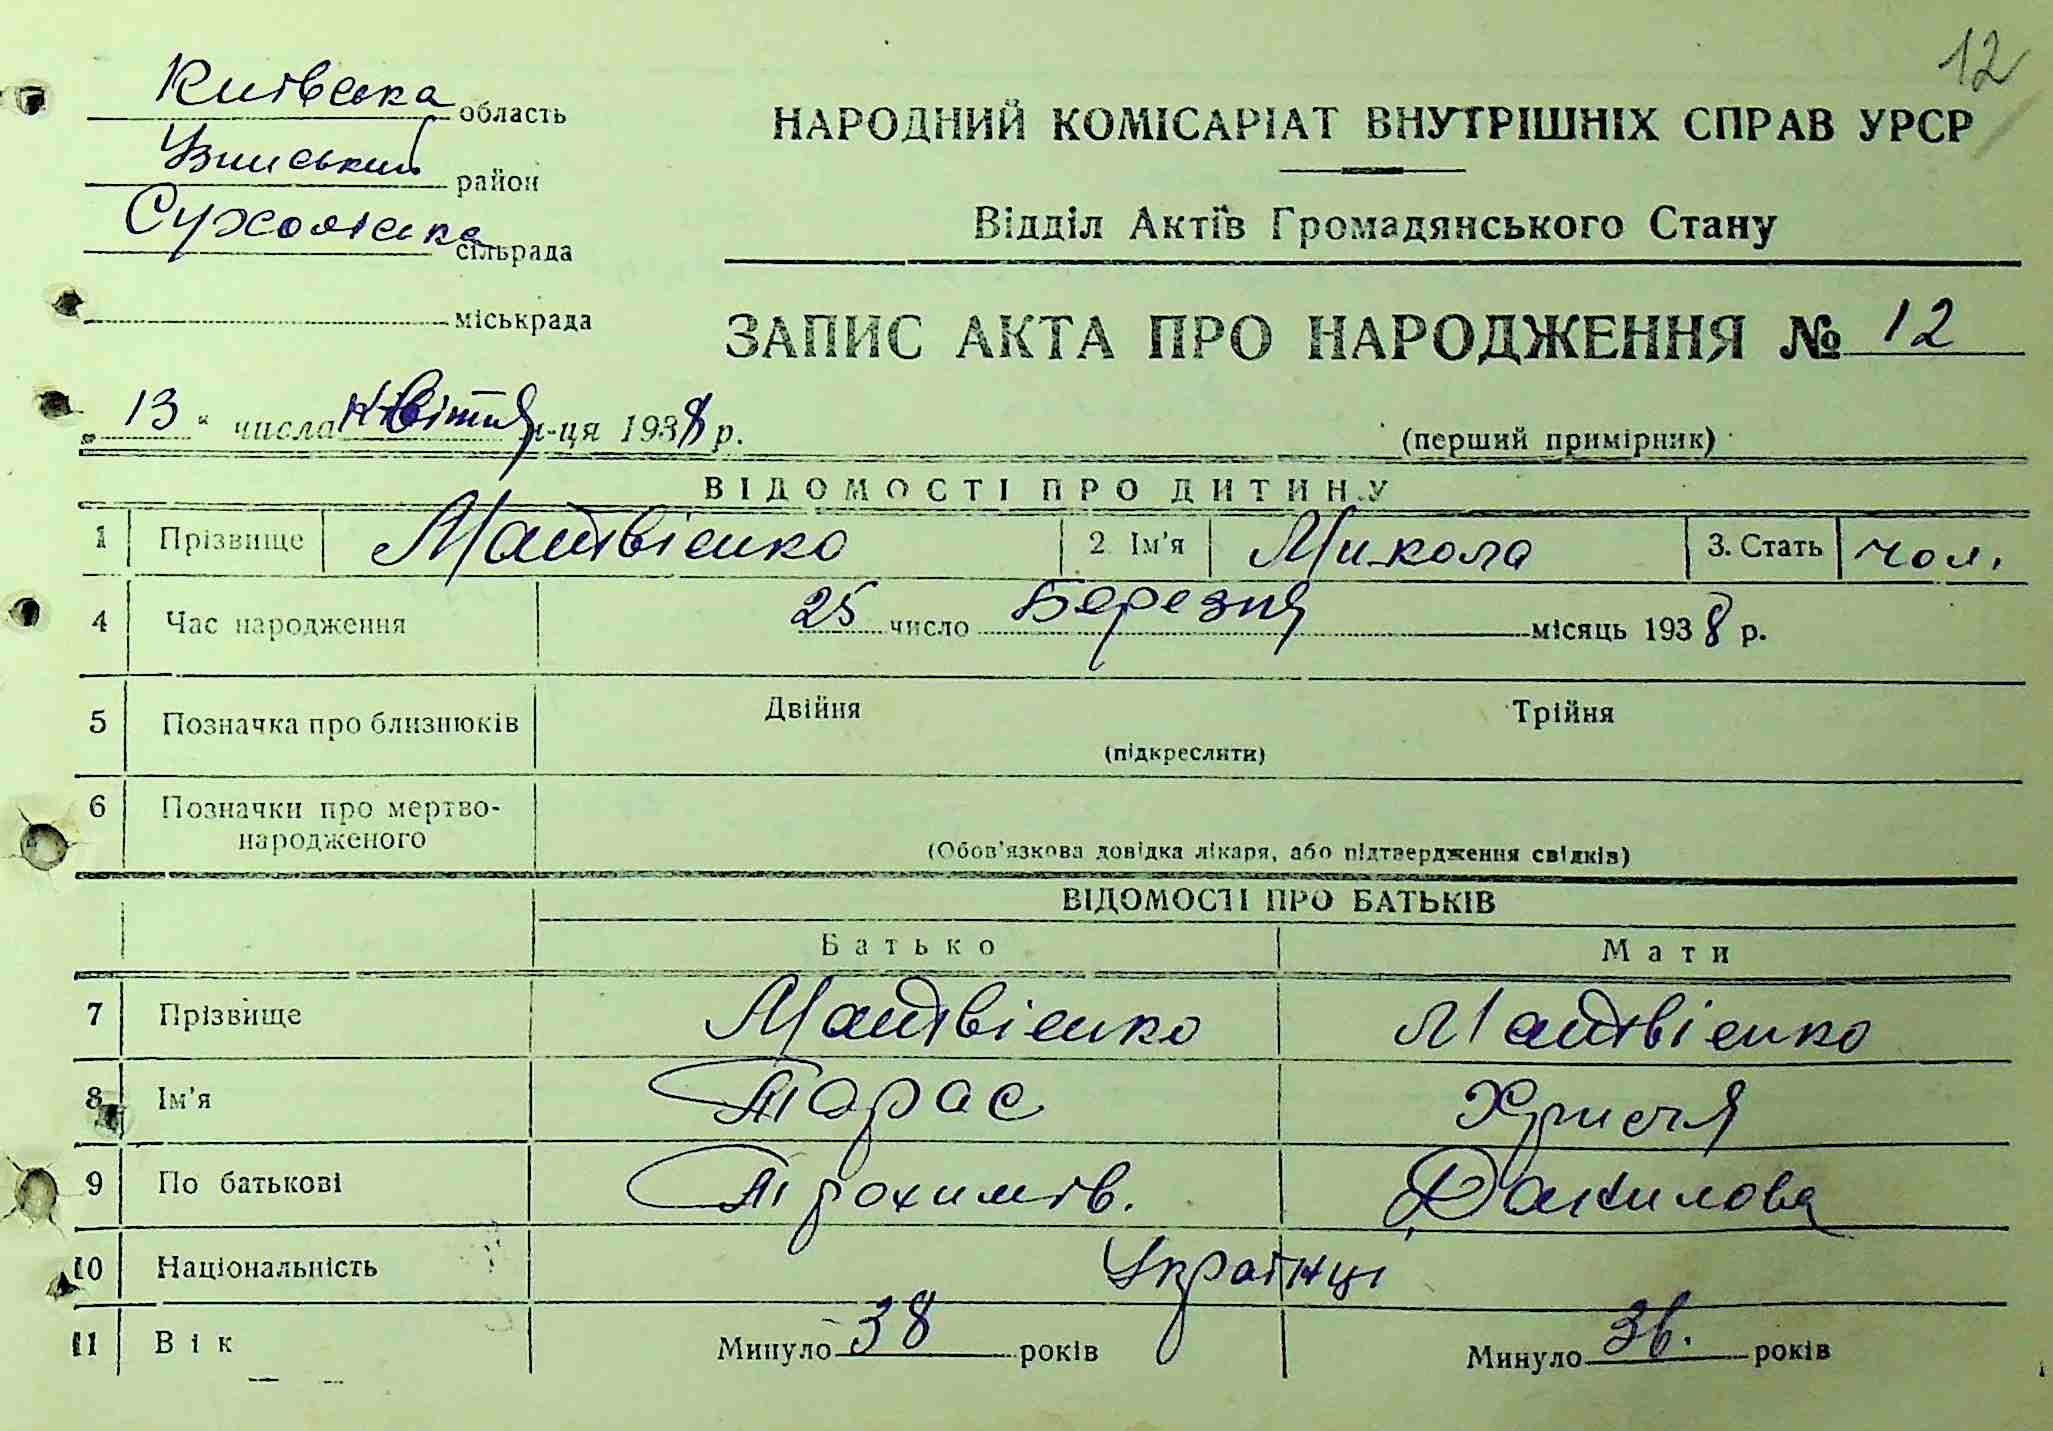 12
Київська область
Узинський район
Сухоліська сільрада
міськрада
НАРОДНИЙ КОМІСАРІАТ ВНУТРІШНІХ СПРАВ УРСР
Відділ Актів Громадянського Стану
ЗАПИС АКТА ПРО НАРОДЖЕННЯ № 12
„13“ числа квітня м-ця 1938 р.
(перший примірник)
ВІДОМОСТІ ПРО ДИТИНУ
1 Прізвище Матвієнко 2. Ім'я Микола 3. Стать чол.
4 Час народження 25 число Березня місяць 1938 р.
5 Позначка про близнюків Двійня Трійня
(підкреслити)
6 Позначки про мертво-
народженого
(Обов'язкова довідка лікаря, або підтвердження свідків)
ВІДОМОСТІ ПРО БАТЬКІВ
Батько Мати
7 Прізвище Матвієнко Матвієнко
8 Ім'я Тарас Христя
9 По батькові Трохимів. Данилова
10 Національність Українці
11 Вік Минуло 38 років Минуло 36. років